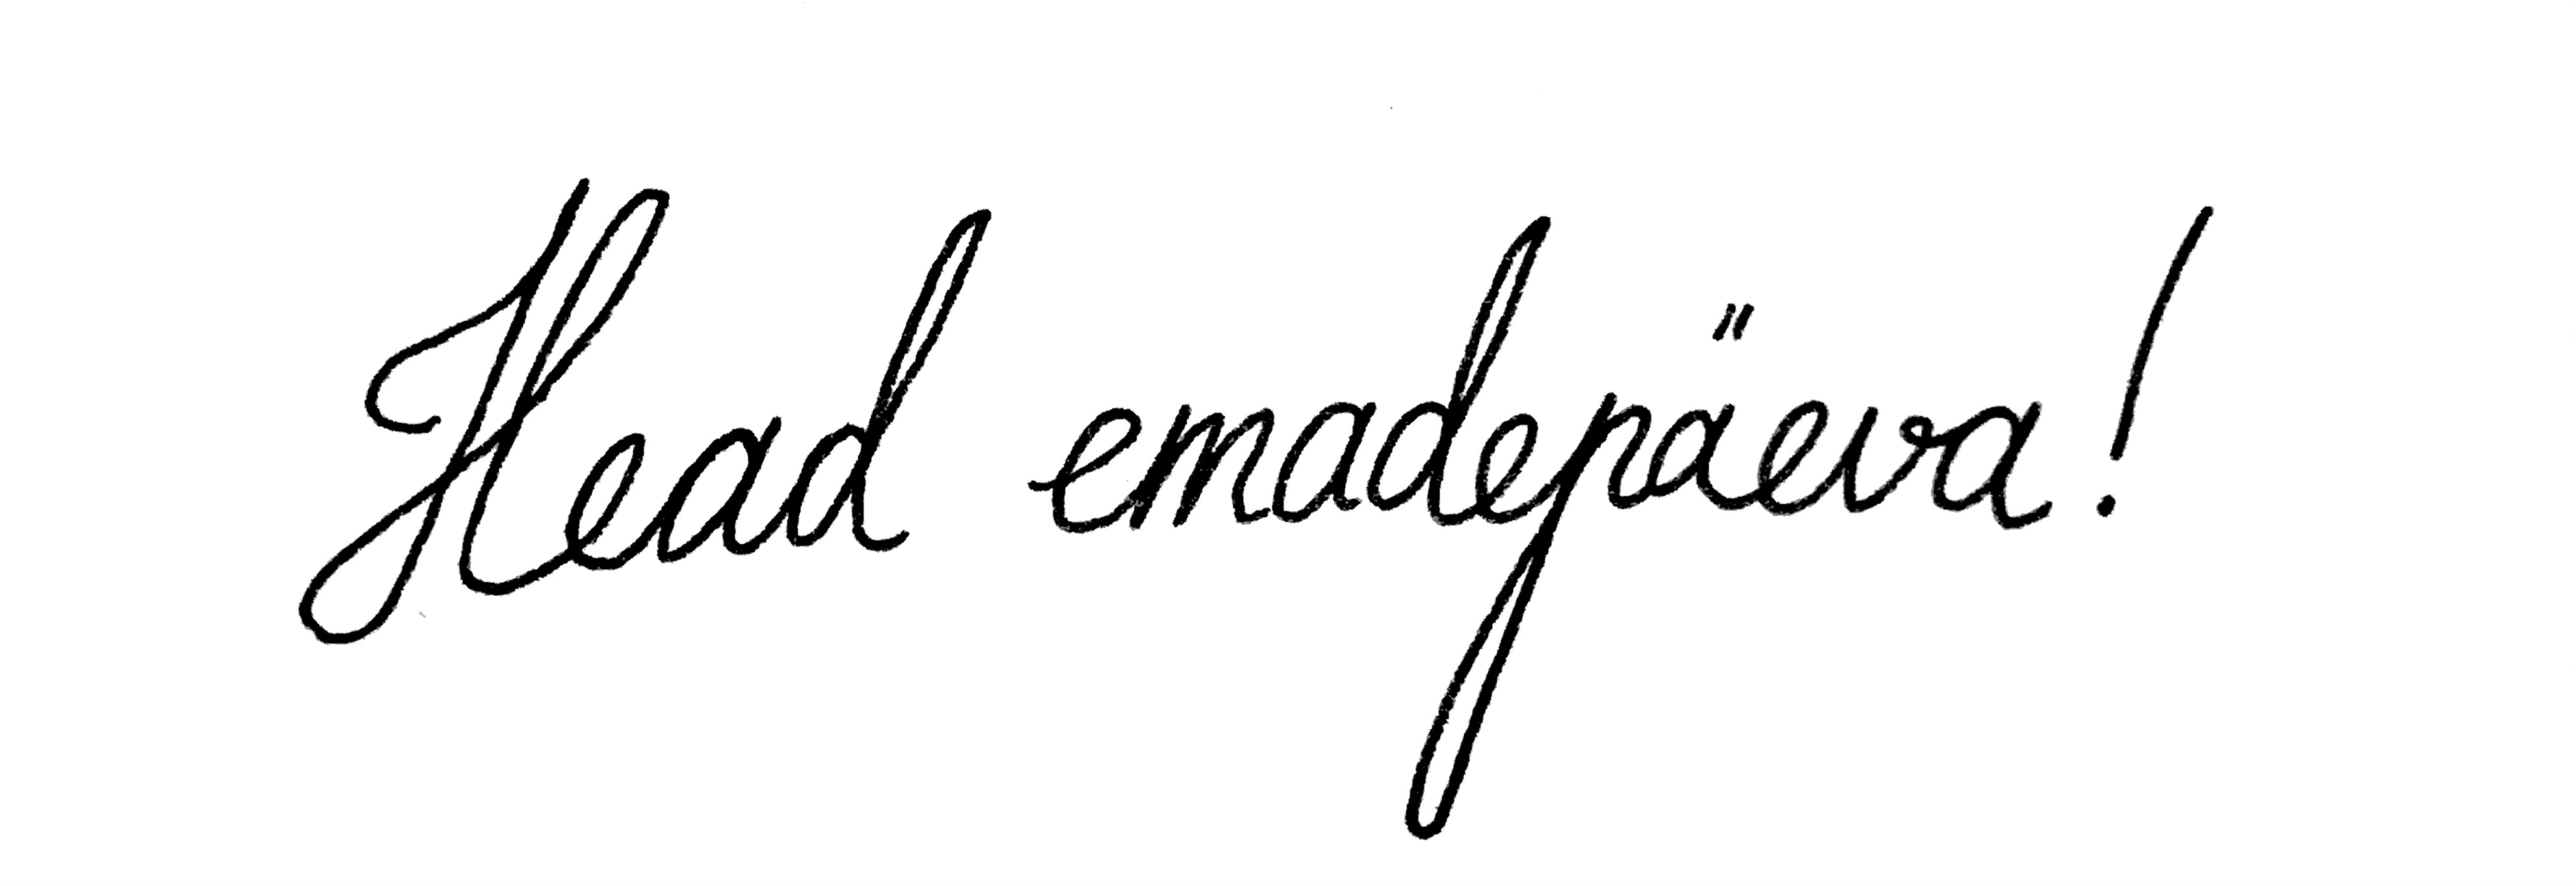 Head emadepäeva!